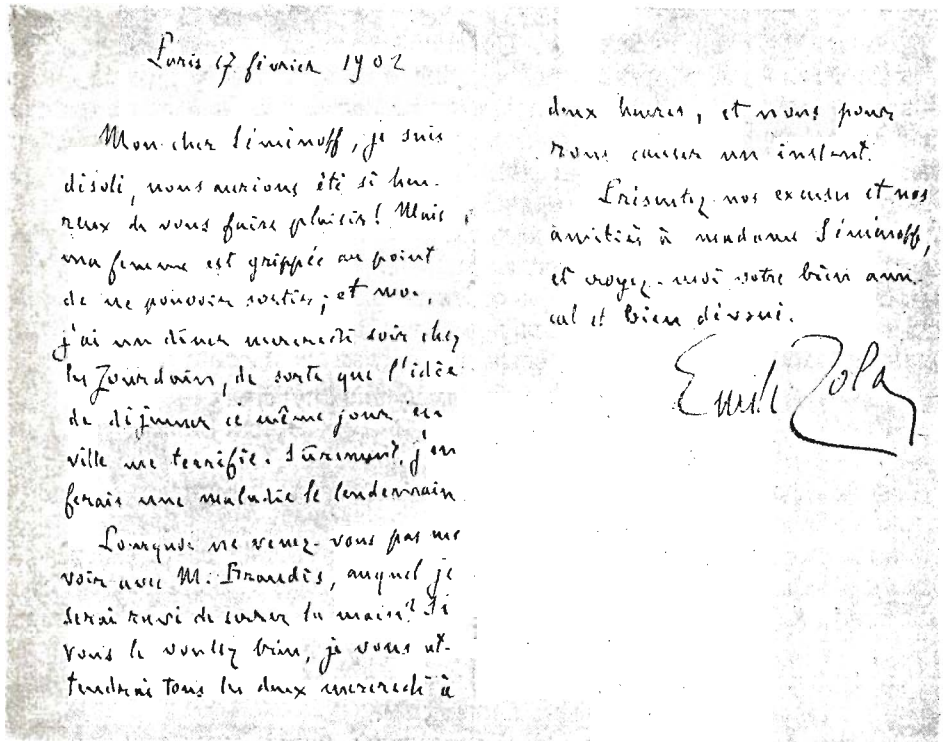 Paris 17 février 1902
Mon cher Séménoff, je suis
désolé, nous aurions été si heu-
reux de vous faire plaisir! Mais
ma femme est grippée au point
de ne pouvoir sortir; et moi,
j'ai un dîner mercredi soir chez
les Jourdain, de sorte que l'idée
de déjeuner ce même jour en
ville me terrifie. Sûrement, j'en
ferais une maladie le lendemain
Pourquoi ne venez-vous pas me
voir avec M. Brandès, auquel je
serai ravi de serrer la main? Si
vous le voulez bien, je vous at-
tendrai tous les deux mercredi à
deux heures, et nous pour
rons causer un instant.
Présentez nos excuses et nos
amitiés à madame Séménoff,
et croyez-moi votre bien ami-
cal et bien dévoué.
Emile Zola